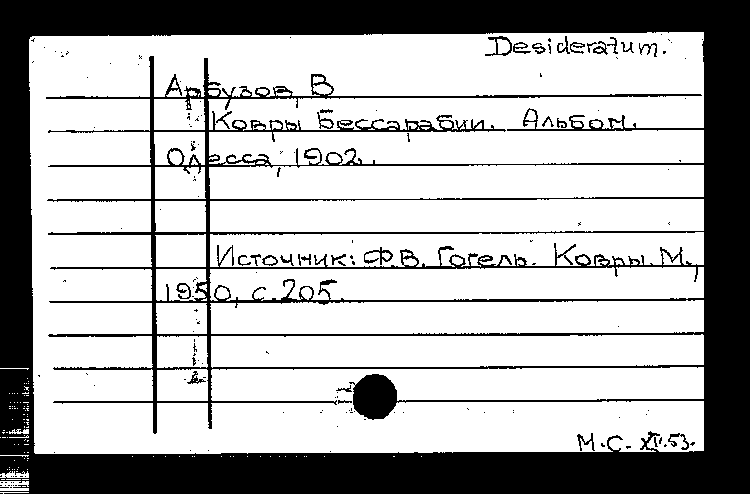 Desideratum.
Арбузов, В
Ковры Бессарабии. Альбом.
Одесса, 1902.
Источник: Ф.В. Гогель. Ковры. М.,
1950, с. 205.
М.С. XII.53.